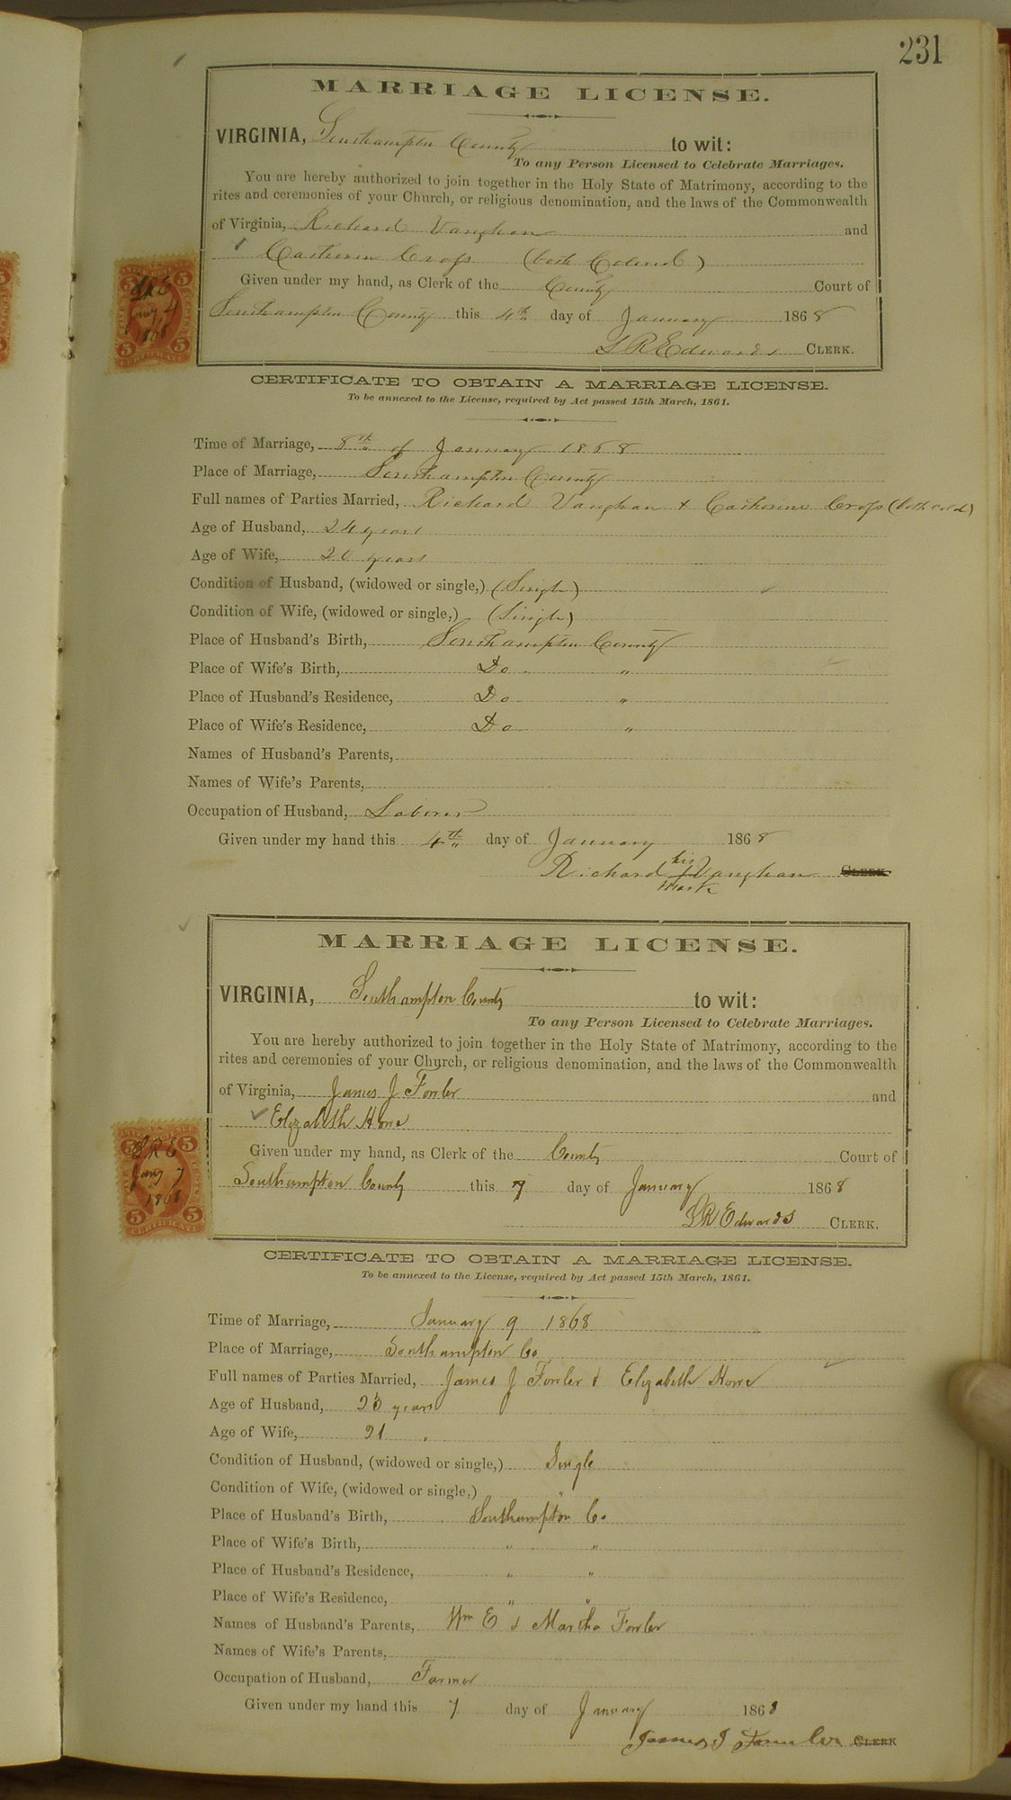 231
MARRIAGE LICENSE.
VIRGINIA, Southampton County to wit:
To any Person Licensed to Celebrate Marriages.
You are hereby authorized to join together in the Holy State of Matrimony, according to the
rites and ceremonies of your Church, or religious denomination, and the laws of the Commonwealth
of Virginia, Richard Vaughan and
Catherine Cross (both Colored)
Given under my hand, as Clerk of the County Court of
Southampton County this 4th day of January 1868
L R Edwards CLERK.
LRE
Jany 4
1868
CERTIFICATE TO OBTAIN A MARRIAGE LICENSE.
To be annexed to the License, required by Act passed 15th March, 1861.
Time of Marriage, 8th of January 1868
Place of Marriage, Southampton County
Full names of Parties Married, Richard Vaughan & Catherine Cross (both cold)
Age of Husband, 24 years
Age of Wife, 20 years
Condition of Husband, (widowed or single,) (Single)
Condition of Wife, (widowed or single,) (Single)
Place of Husband's Birth, Southampton County
Place of Wife's Birth, Do "
Place of Husband's Residence, Do "
Place of Wife's Residence, Do "
Names of Husband's Parents,
Names of Wife's Parents,
Occupation of Husband, Laborer
Given under my hand this 4th day of January 1868
Richard his Vaughan CLERK
mark
MARRIAGE LICENSE.
VIRGINIA, Southampton County to wit:
To any Person Licensed to Celebrate Marriages.
You are hereby authorized to join together in the Holy State of Matrimony, according to the
rites and ceremonies of your Church, or religious denomination, and the laws of the Commonwealth
of Virginia, James J Fowler and
Elizabeth Howe
Given under my hand, as Clerk of the County Court of
Southampton County this 7 day of January 1868
L R Edwards CLERK.
LRE
Jany 7
1868
CERTIFICATE TO OBTAIN A MARRIAGE LICENSE.
To be annexed to the License, required by Act passed 15th March, 1861.
Time of Marriage, January 9 1868
Place of Marriage, Southampton Co
Full names of Parties Married, James J Fowler & Elizabeth Howe
Age of Husband, 23 years
Age of Wife, 21 "
Condition of Husband, (widowed or single,) Single
Condition of Wife, (widowed or single,) "
Place of Husband's Birth, Southampton Co
Place of Wife's Birth, " "
Place of Husband's Residence, " "
Place of Wife's Residence, " "
Names of Husband's Parents, Wm E & Martha Fowler
Names of Wife's Parents,
Occupation of Husband, Farmer
Given under my hand this 7 day of January 1868
James J Fowler CLERK